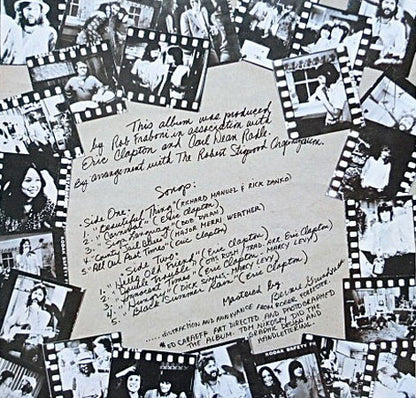 This album was produced
by Rob Fraboni in association with
Eric Clapton and Carl Dean Radle.
By arrangement with The Robert Stigwood Organisation.
Songs:
Side One:
1. "Beautiful Thing" (RICHARD MANUEL & RICK DANKO)
2. "Carnival" (Eric Clapton)
3. "Sign Language" (BOB DYLAN)
4. "County Jail Blues" (MAJOR MERRI WEATHER)
5. "All Our Past Times" (Eric Clapton)
Side Two:
1. "Hello Old Friend" (Eric Clapton)
2. "Double Trouble" (OTIS RUSH / TRAD. ARR. Eric Clapton)
3. "Innocent Times" (Eric Clapton, MARCY LEVY)
4. "Hungry" (DICK SIMS, MARCY LEVY)
5. "Black Summer Rain" (Eric Clapton)
Mastered by
DISTRACTION AND ANNOYANCE FROM ROGER FORRESTER.
ED CARAEFF ART DIRECTED AND PHOTOGRAPHED
THE ALBUM. TOM NIKOSEY DID THE
GRAPHIC DESIGN AND
HANDLETTERING.
KODAK